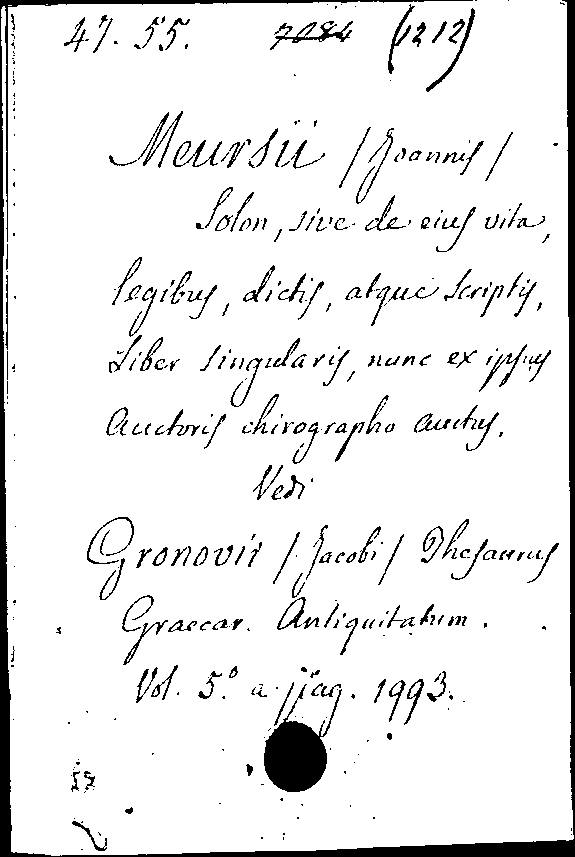 47. 55. 7084 (1212)
Meursii /Joannis/
Solon, sive de eius vita,
legibus, dictis, atque scriptis,
Liber singularis, nunc ex ipsius
Auctoris chirographo auctus.
Vedi
Gronovii /Jacobi/ Thesaurus
Graecar. Antiquitatum.
Vol. 5.º a pag. 1993.
57